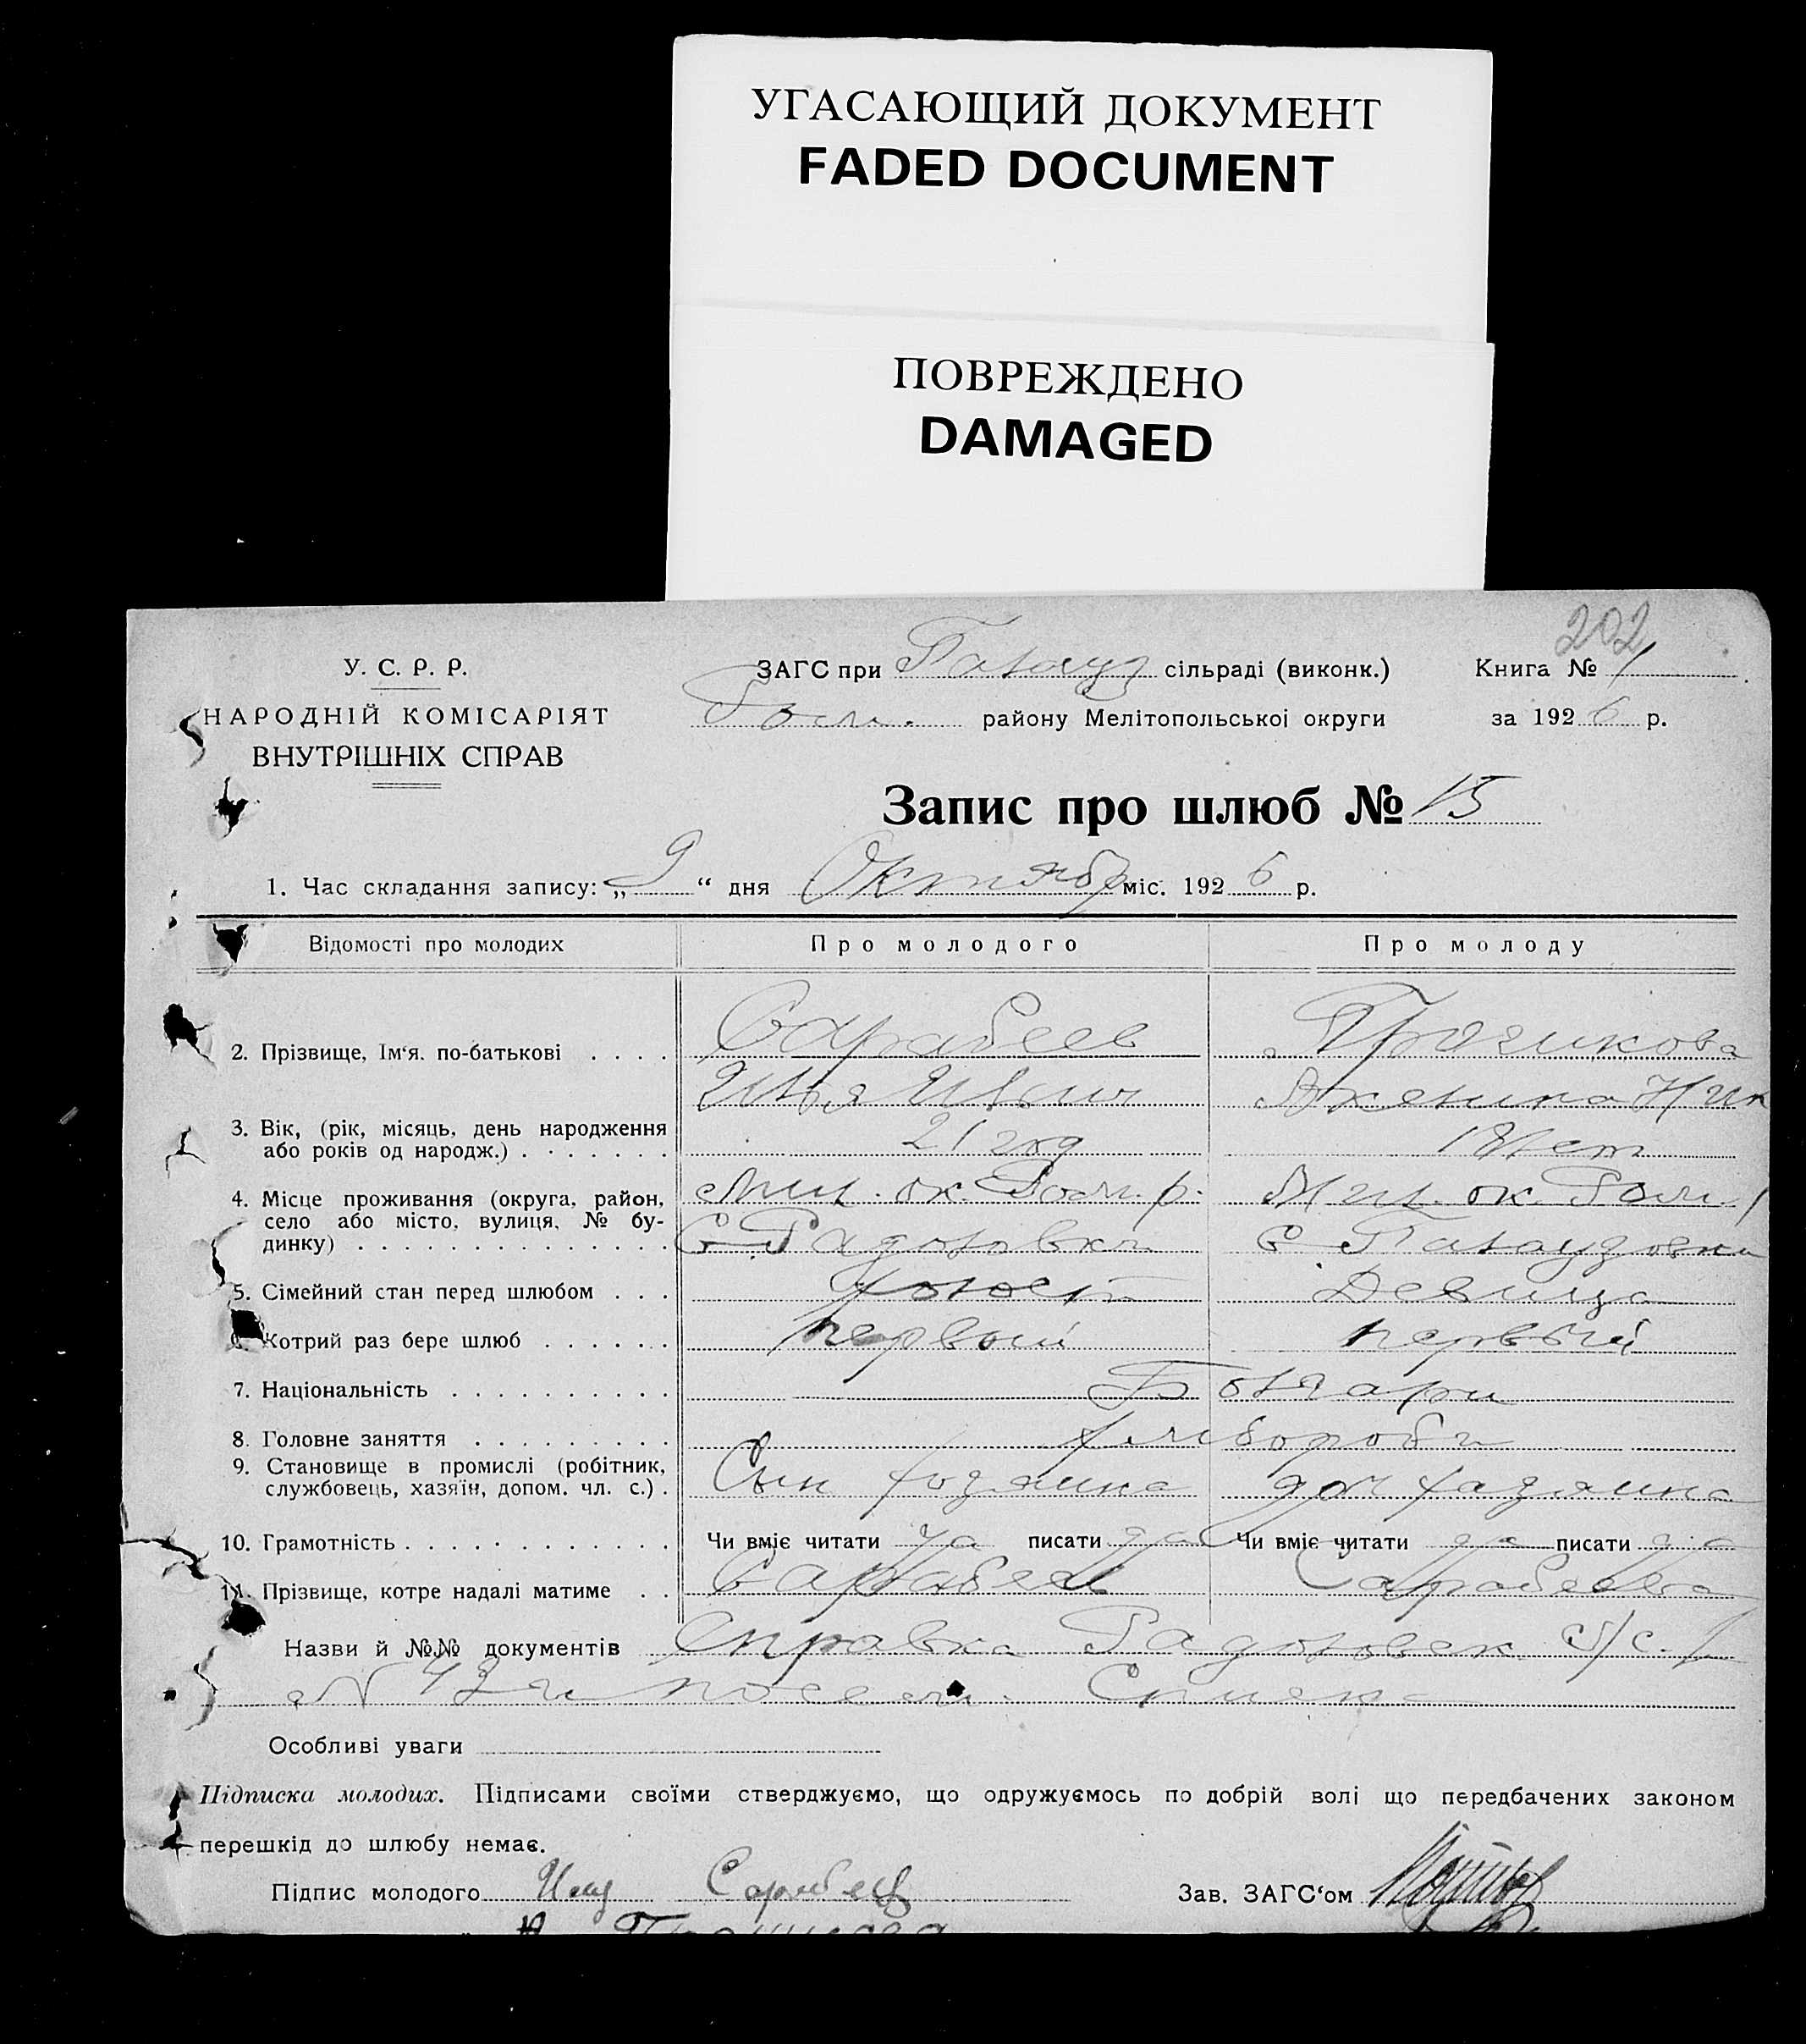 УГАСАЮЩИЙ ДОКУМЕНТ
FADED DOCUMENT
ПОВРЕЖДЕНО
DAMAGED
202
У. С. Р. Р.
ЗАГС при сільраді (виконк.) Книга № 1
НАРОДНІЙ КОМІСАРІЯТ
ВНУТРІШНІХ СПРАВ
району Мелітопольської округи за 1926 р.
Запис про шлюб № 15
1. Час складання запису: „9“ дня Октябр міс. 1926 р.
Відомості про молодих Про молодого Про молоду
2. Прізвище, Ім‘я. по-батькові . . . . Сарабеев
Илья Ивыч
3. Вік, (рік, місяць, день народження
або років од народж.) . . . . . . . 21 год 18 лет
4. Місце проживання (округа, район, Мил. ок. р. Мил. ок.
село або місто, вулиця, № бу-
динку) . . . . . . . . . . . . . . с Радоловка с
5. Сімейний стан перед шлюбом . . . холост Девица
6. Котрий раз бере шлюб . . . . . . первый первый
7. Національність . . . . . . . . . . Болгари
8. Головне заняття . . . . . . . . . хлибороби
9. Становище в промислі (робітник,
службовець, хазяїн, допом. чл. с.) . Сын хозяина доч хазяина
10. Грамотність . . . . . . . . . . . . Чи вміє читати да писати да Чи вміє читати да писати да
11. Прізвище, котре надалі матиме . . Сарабеев Сарабеева
Назви й №№ документів Справка Радоловск с/с.
N посем. Списка
Особливі уваги
Підписка молодих. Підписами своїми стверджуємо, що одружуємось по добрій волі що передбачених законом
перешкід до шлюбу немає.
Підпис молодого Сарабеев Зав. ЗАГС‘ом